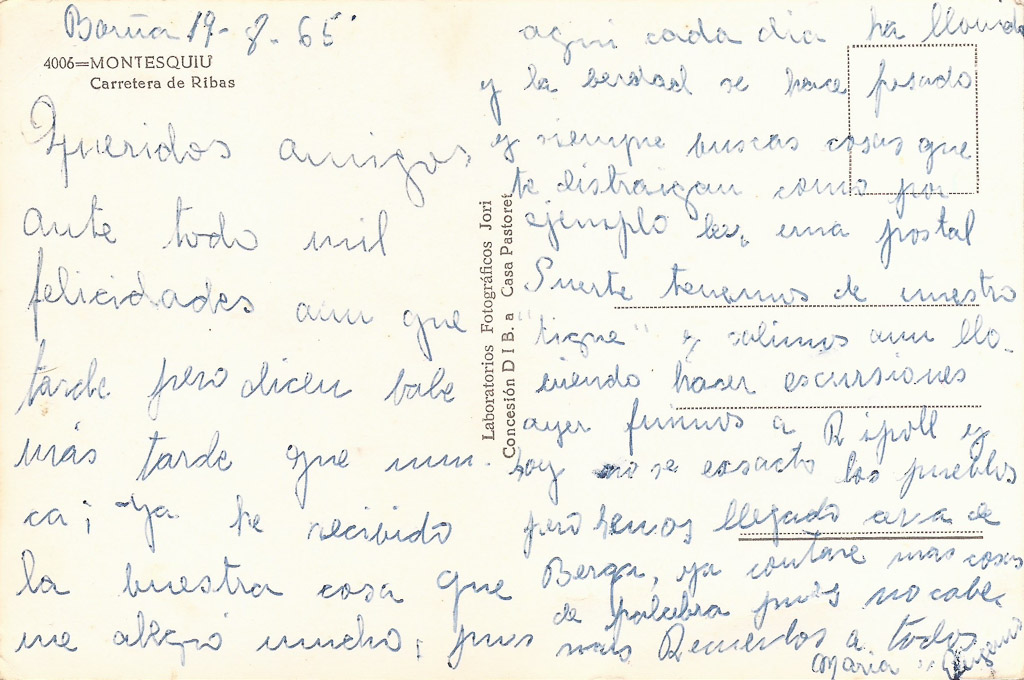 Borña 19-8-65
4006=MONTESQUIU
Carretera de Ribas
Queridos amigos
ante todo mil
felicidades aun que
tarde pero dicen bale
más tarde que nun-
ca; Ya he recibido
la buestra cosa que
me alegró mucho; pues
Laboratorios Fotográficos Jori
Concesión D I B. a Casa Pastoret
aqui cada dia ha llovido
y la berdad se hace pesado
y siempre buscas cosas que
te distraigan como por
ejemplo una postal
Suerte tenemos de nuestro
"tigre" y salimos aun llo-
viendo haser escursiones
ayer fuimos a Ripoll y
hoy no se exsacto los pueblos
pero hemos llegado de
Berga, ya contare más cosas
de palabra pués no cabe
más Recuerdos a todos
Maria